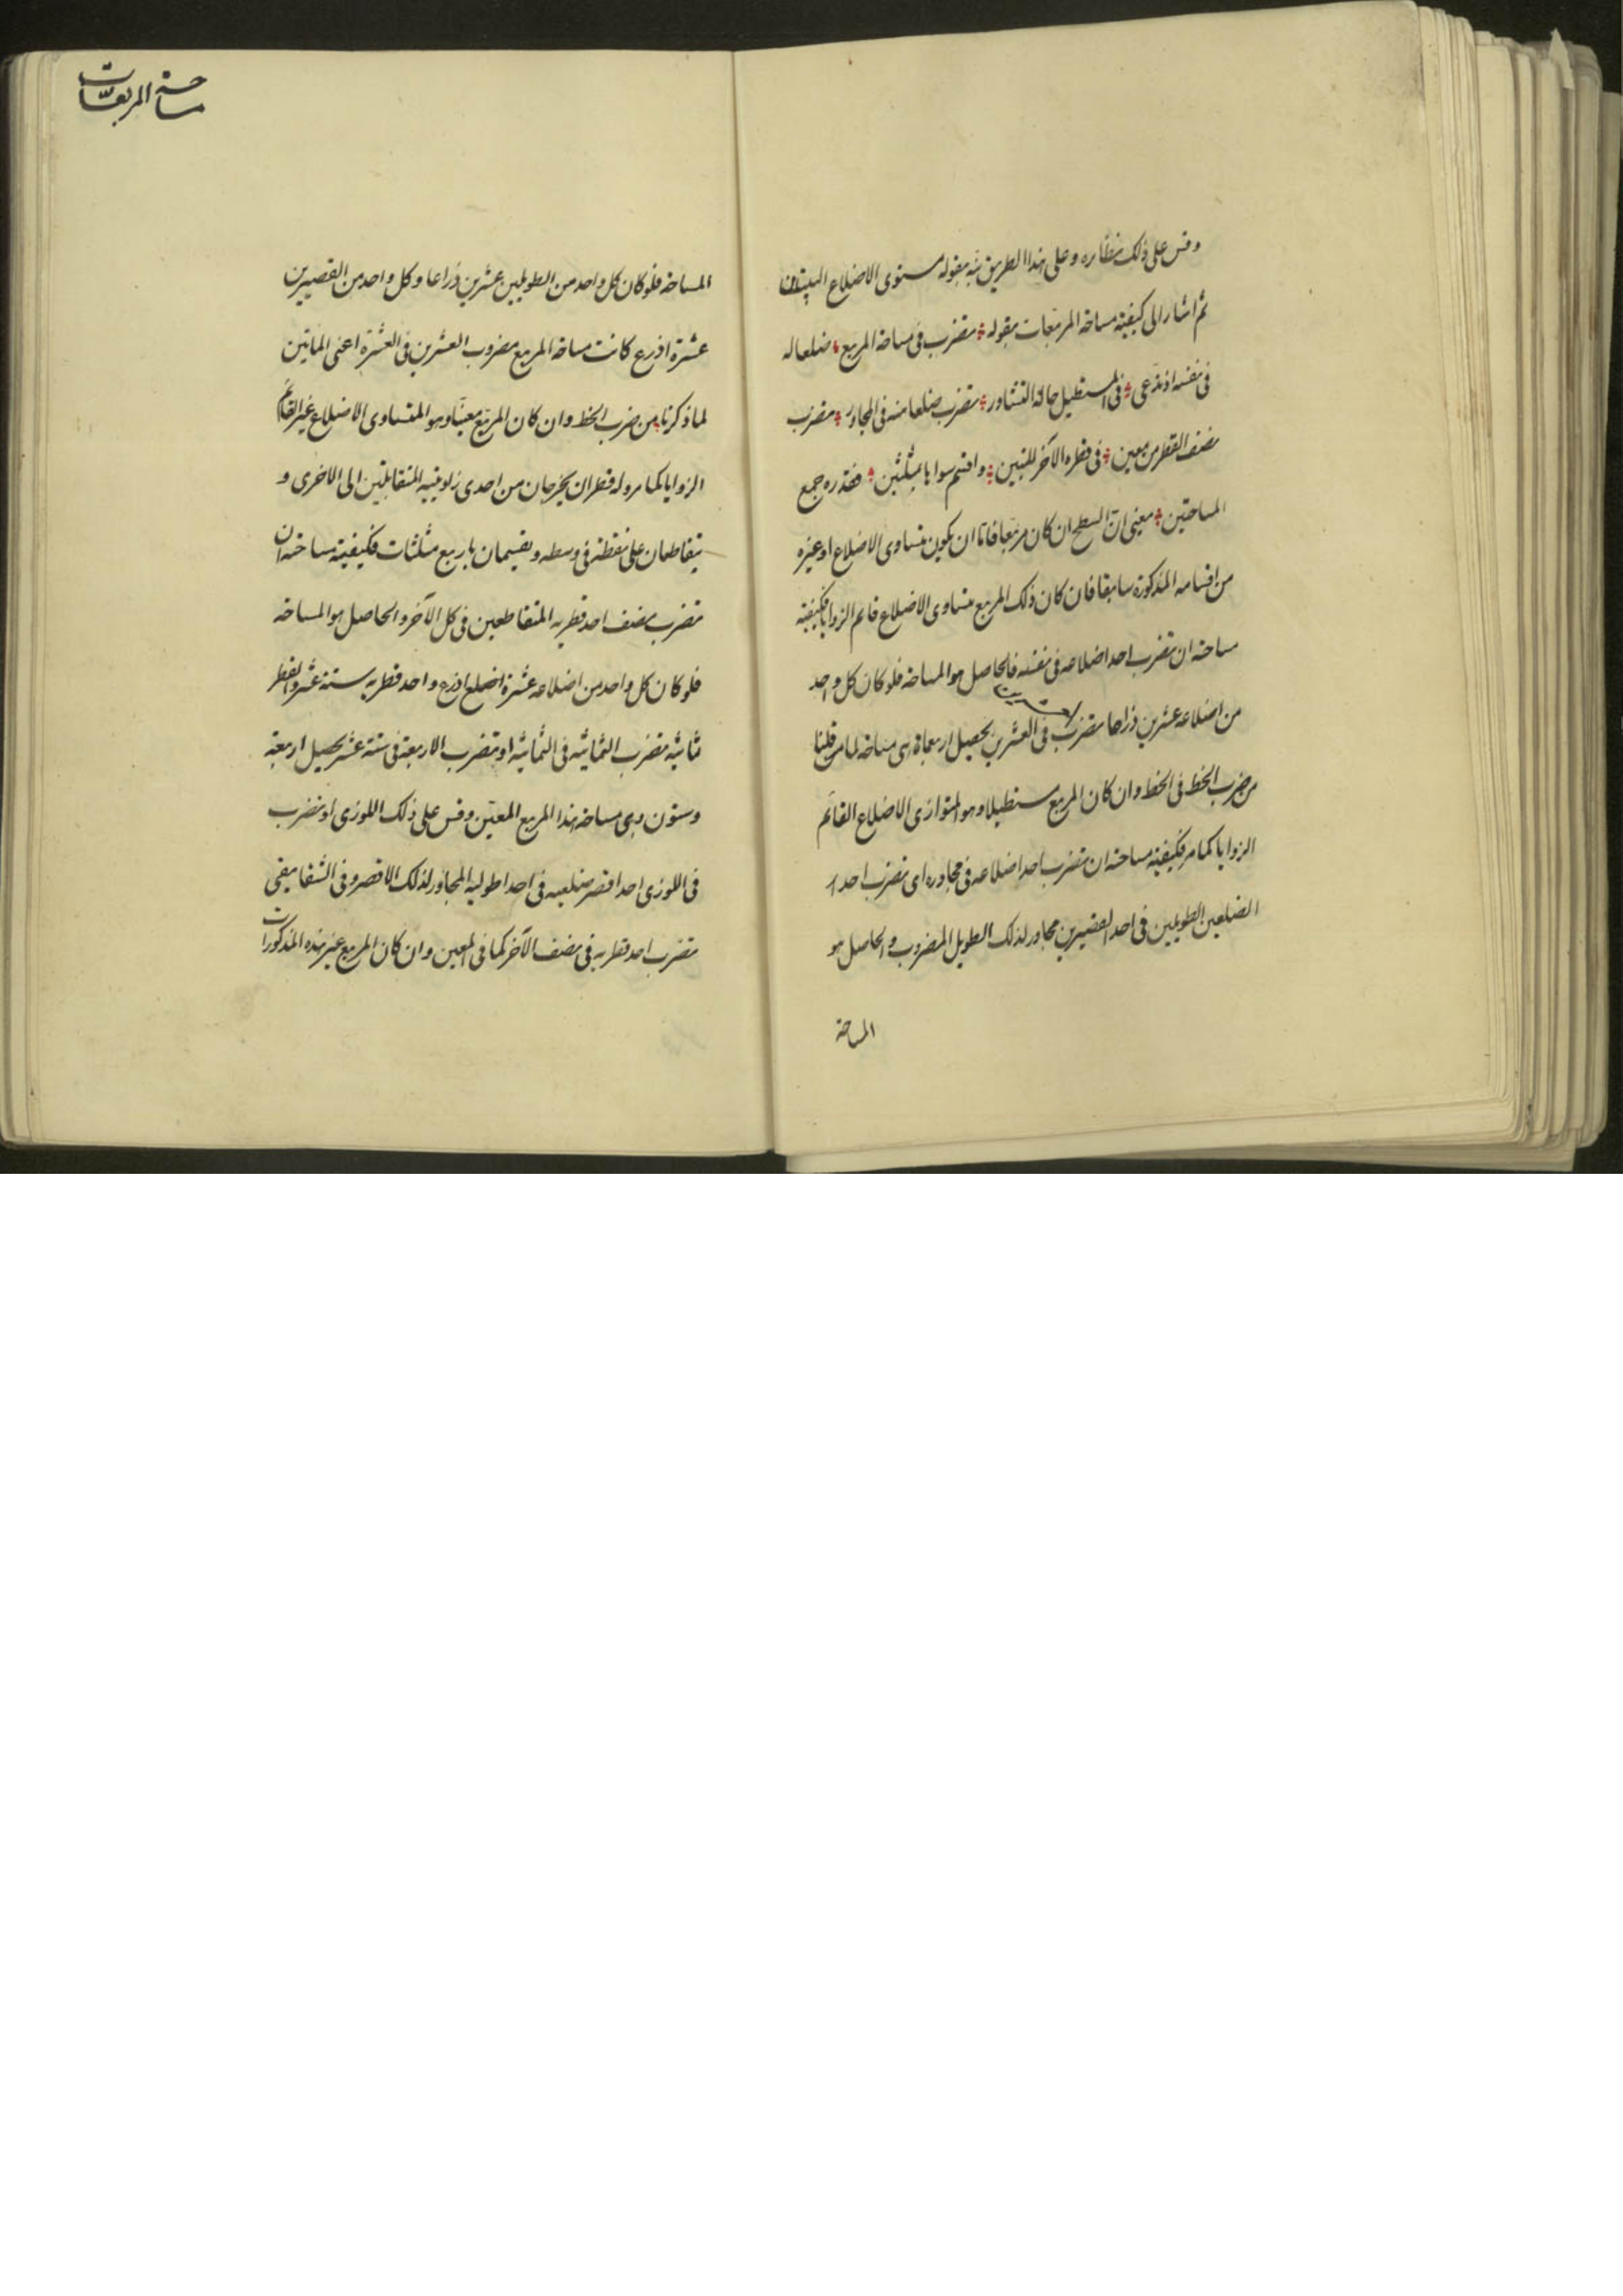 وقس على ذلك نظائره وعلى هذا الطريق نبه بقوله مستوى الاضلاع البيتان
ثم اشار الى كيفية مساحة المربعات بقوله تضرب فى مساحة المربع ضلعا له
فى نفسه اذ تدعى فى المستطيل حالة التشاور تضرب ضلعا منه فى المجاور تضرب
نصف القطر من معين فى قطره الآخر للتبين واقسم سواها بمثلثين فقدره جمع
المساحتين يعنى ان السطح ان كان مربعا فاما ان يكون متساوى الاضلاع او غيره
من اقسامه المذكورة سابقا فان كان ذلك المربع متساوى الاضلاع قائم الزوايا فكيفية
مساحته ان تضرب احد اضلاعه فى نفسه فالحاصل هو المساحة فلو كان كل واحد
من اضلاعه عشرين ذراعا تضرب فى العشرين يحصل اربعمائة هى مساحة لما مر قلنا
من ضرب الخط فى الخط وان كان المربع مستطيلا وهو المتوازى الاضلاع القائم
الزوايا كما مر فكيفية مساحته ان تضرب احد اضلاعه فى مجاوره اى تضرب احد
الضلعين الطويلين فى احد القصيرين مجاور لذلك الطويل المضروب والحاصل هو
المساحة
مساحة المربعات
المساحة فلو كان كل واحد من الطويلين عشرين ذراعا وكل واحد من القصيرين
عشرة اذرع كانت مساحة المربع مضروب العشرين فى العشرة اعنى المأتين
لما ذكرنا من ضرب الخط وان كان المربع معينا وهو المتساوى الاضلاع غير القائم
الزوايا كما مر وله قطران يخرجان من احدى زاويتيه المتقابلتين الى الاخرى و
يتقاطعان على نقطة فى وسطه ويقسيمان باربع مثلثات فكيفية مساحته ان
تضرب نصف احد قطريه المتقاطعين فى كل الآخر والحاصل هو المساحة
فلو كان كل واحد من اضلاعه عشرة اضلع اذرع واحد قطريه ستة عشر والقطر
ثمانية تضرب الثمانية فى الثمانية او تضرب الاربعة فى ستة عشر يحصل اربعة
وستون وهى مساحة هذا المربع المعين وقس على ذلك اللوزى او تضرب
فى اللوزى احد اقصر ضلعيه فى احد اطوليه المجاور لذلك الاقصر وفى الشفا يبقى
تضرب احد قطريه فى نصف الآخر كما فى المعين وان كان المربع غير هذه المذكورات